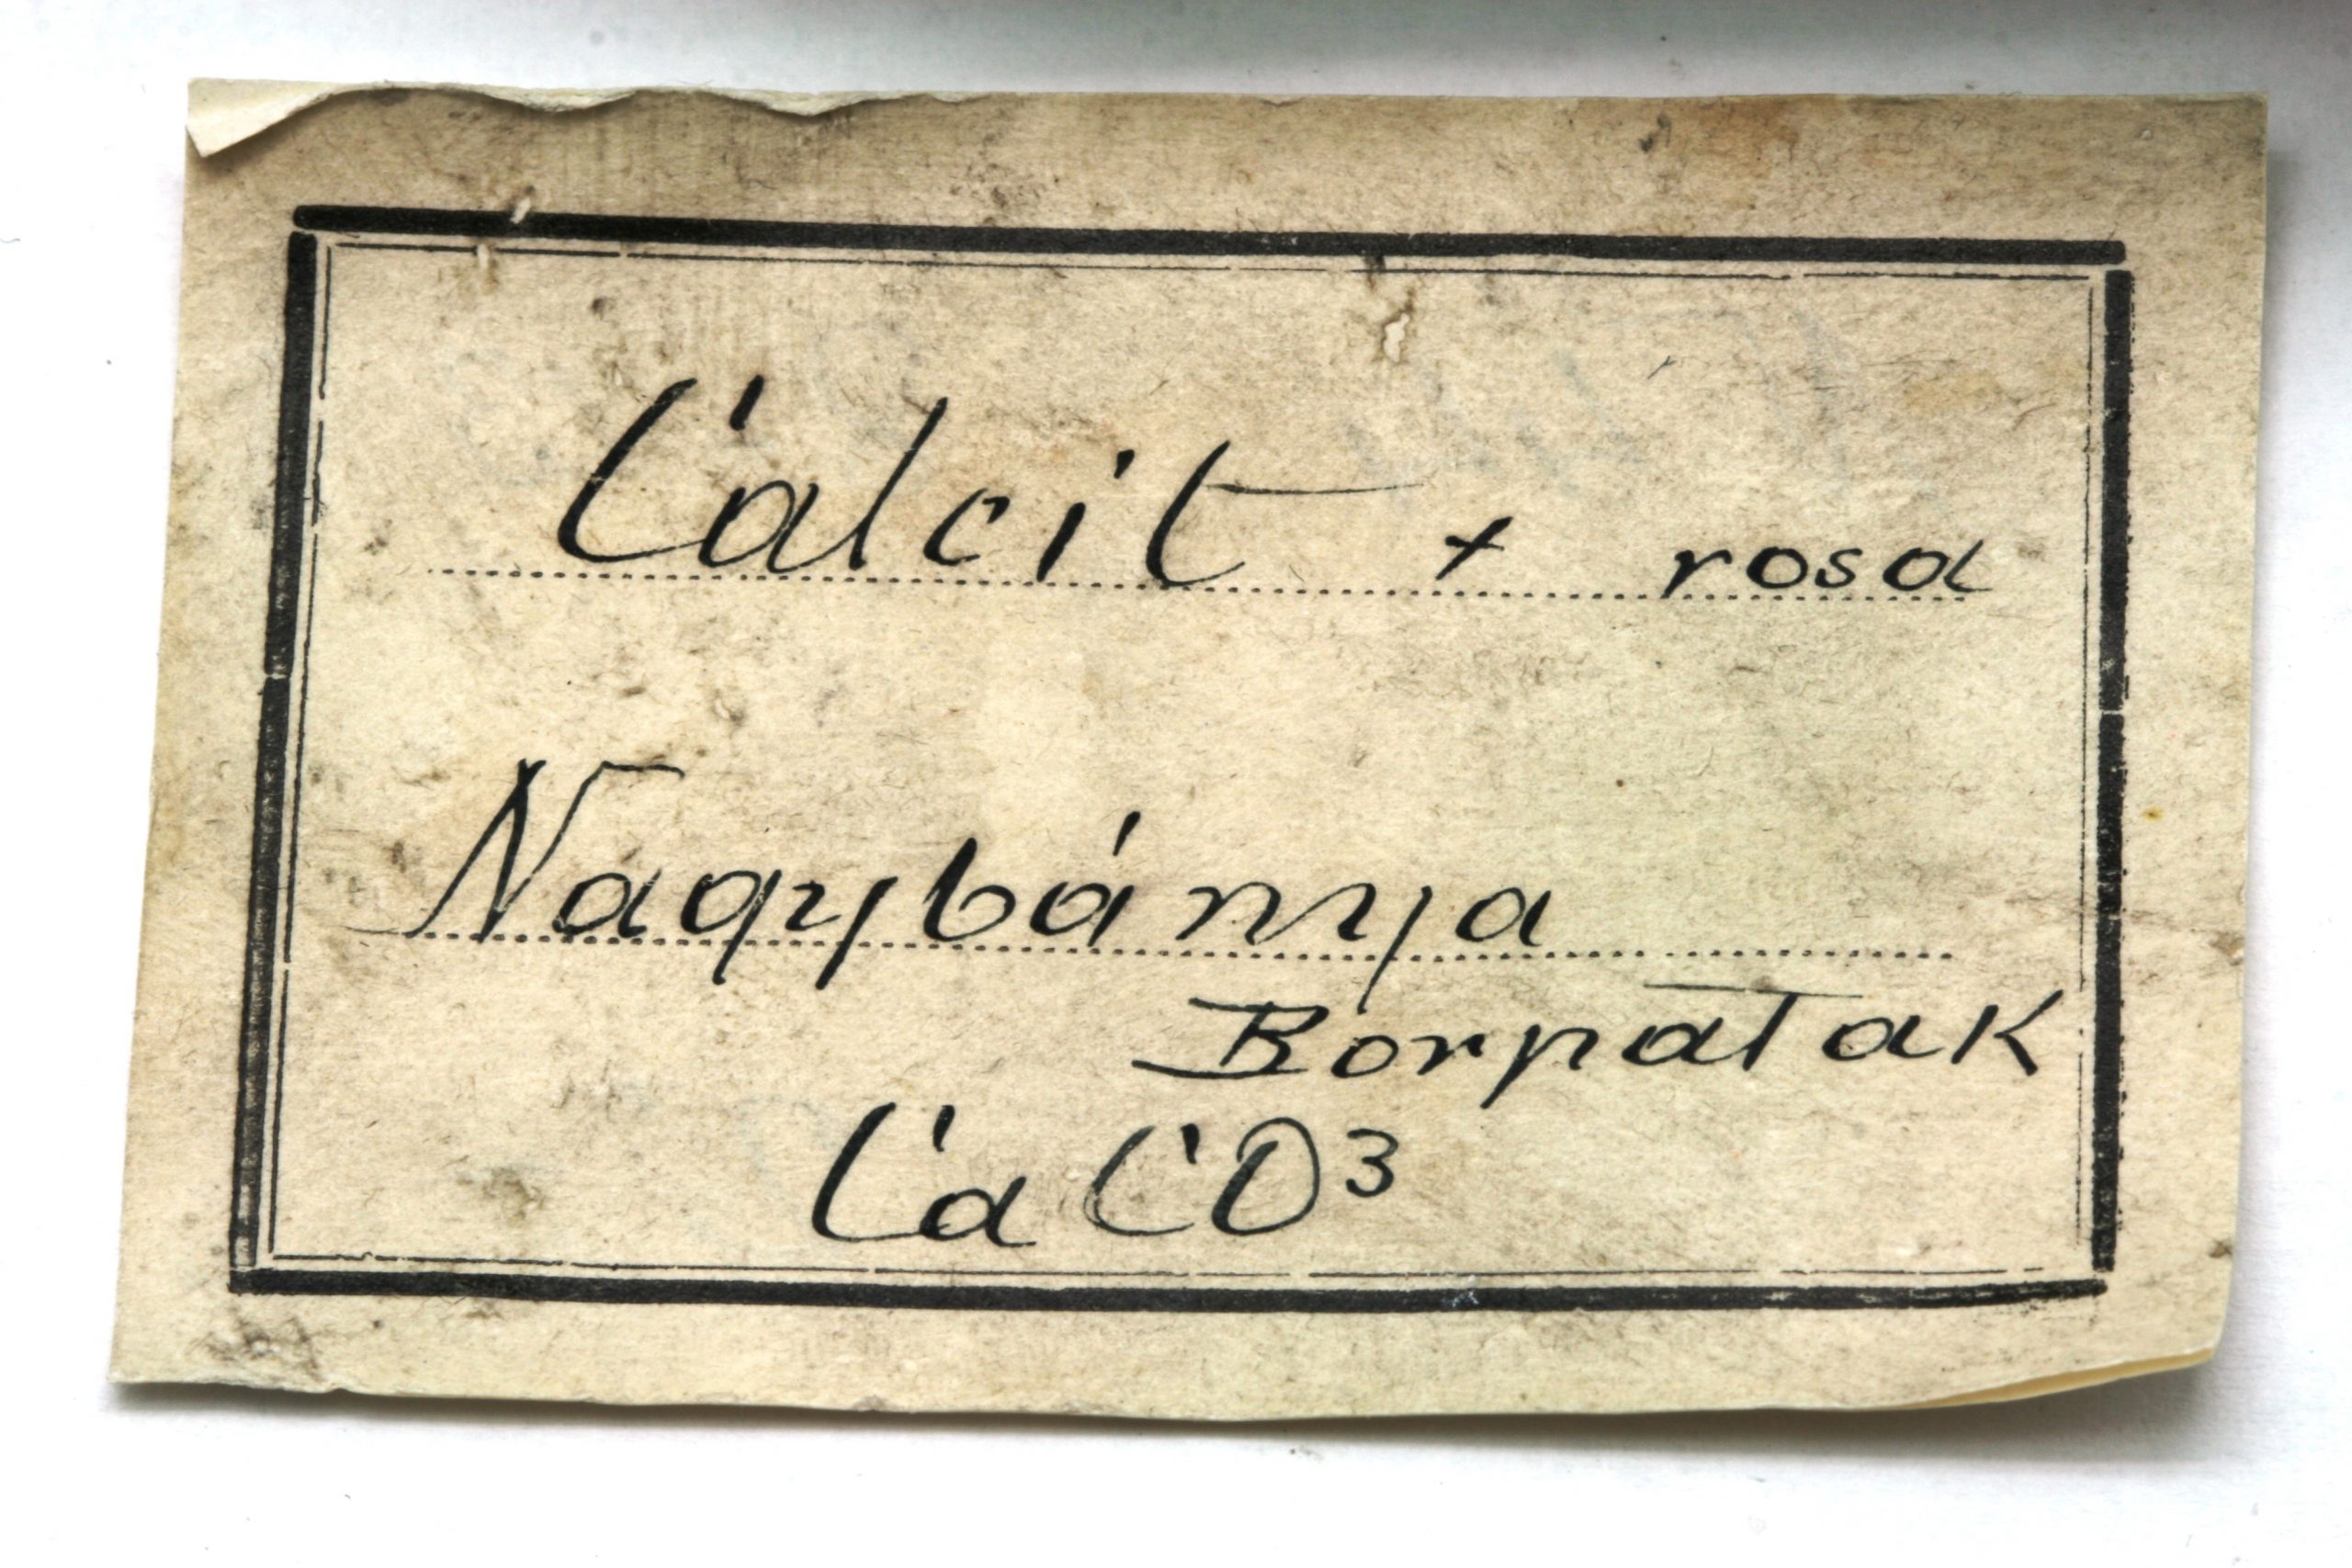 Calcit + rosa
Nagybánya
Borpatak
CaCO³